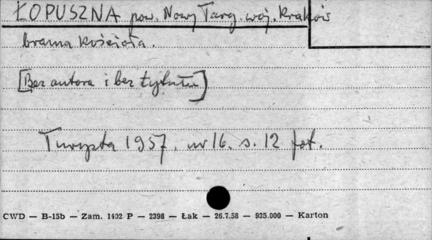 ŁOPUSZNA pow. Nowy Targ. woj. Kraków
brama kościoła.
[Bez autora i bez tytułu]
Turysta 1957. nr 16. s. 12 fot.
CWD — B-15b — Zam. 1402 P — 2398 — Łak — 26.7.58 — 925.000 — Karton